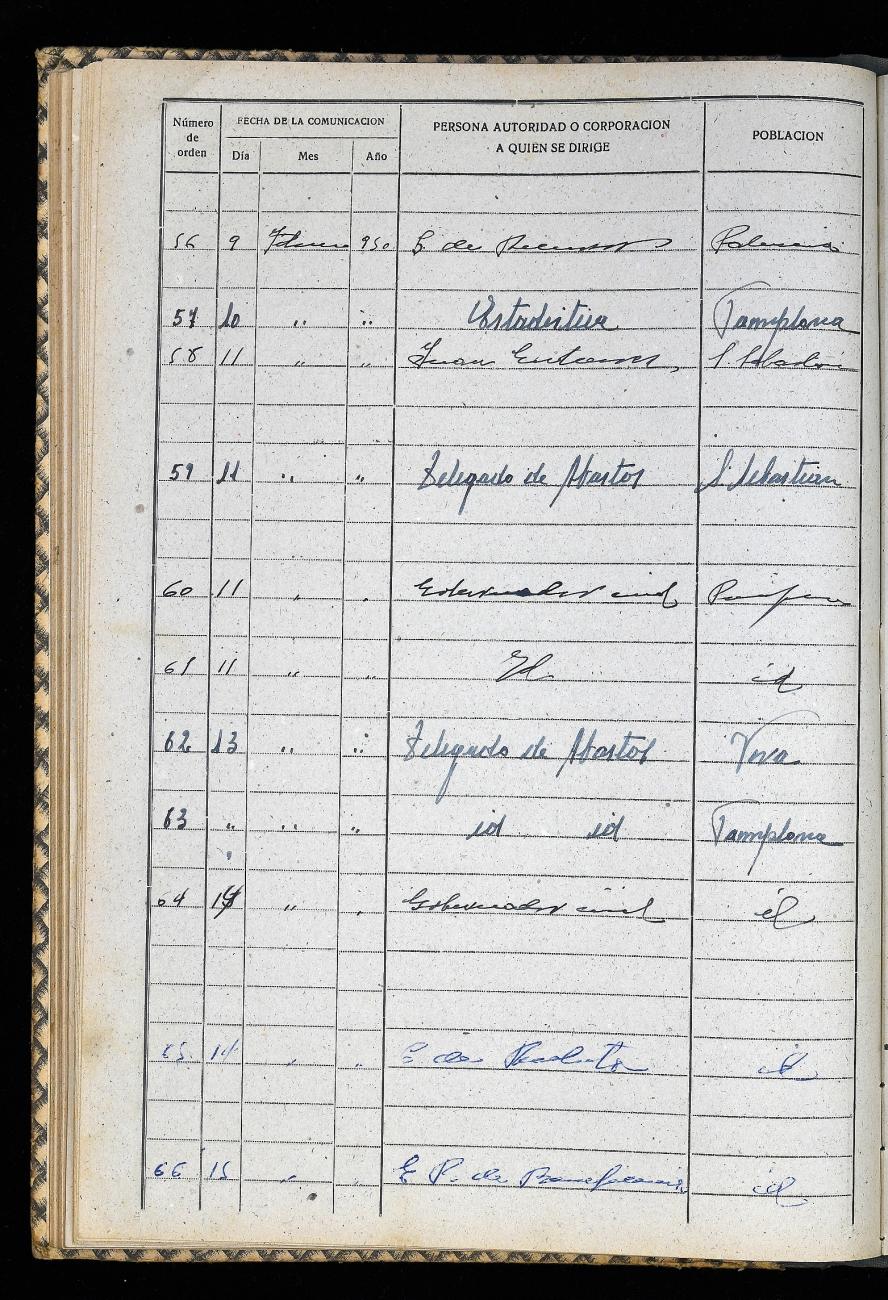 Número de orden FECHA DE LA COMUNICACION PERSONA AUTORIDAD O CORPORACION A QUIEN SE DIRIGE POBLACION
Día Mes Año
56 9 Febrero 950 de
57 10 " " Estadística Pamplona
58 11 " " Juan S. Sebastián
59 11 " " Delegado de Abastos S. Sebastian
60 11 " " Gobernador civil
61 11 " " Id id
62 13 " " Delegado de Abastos Vera
63 " " " id id Pamplona
64 14 " " Gobernador civil id
65 14 " " de id
66 15 " " P. de Beneficencia id